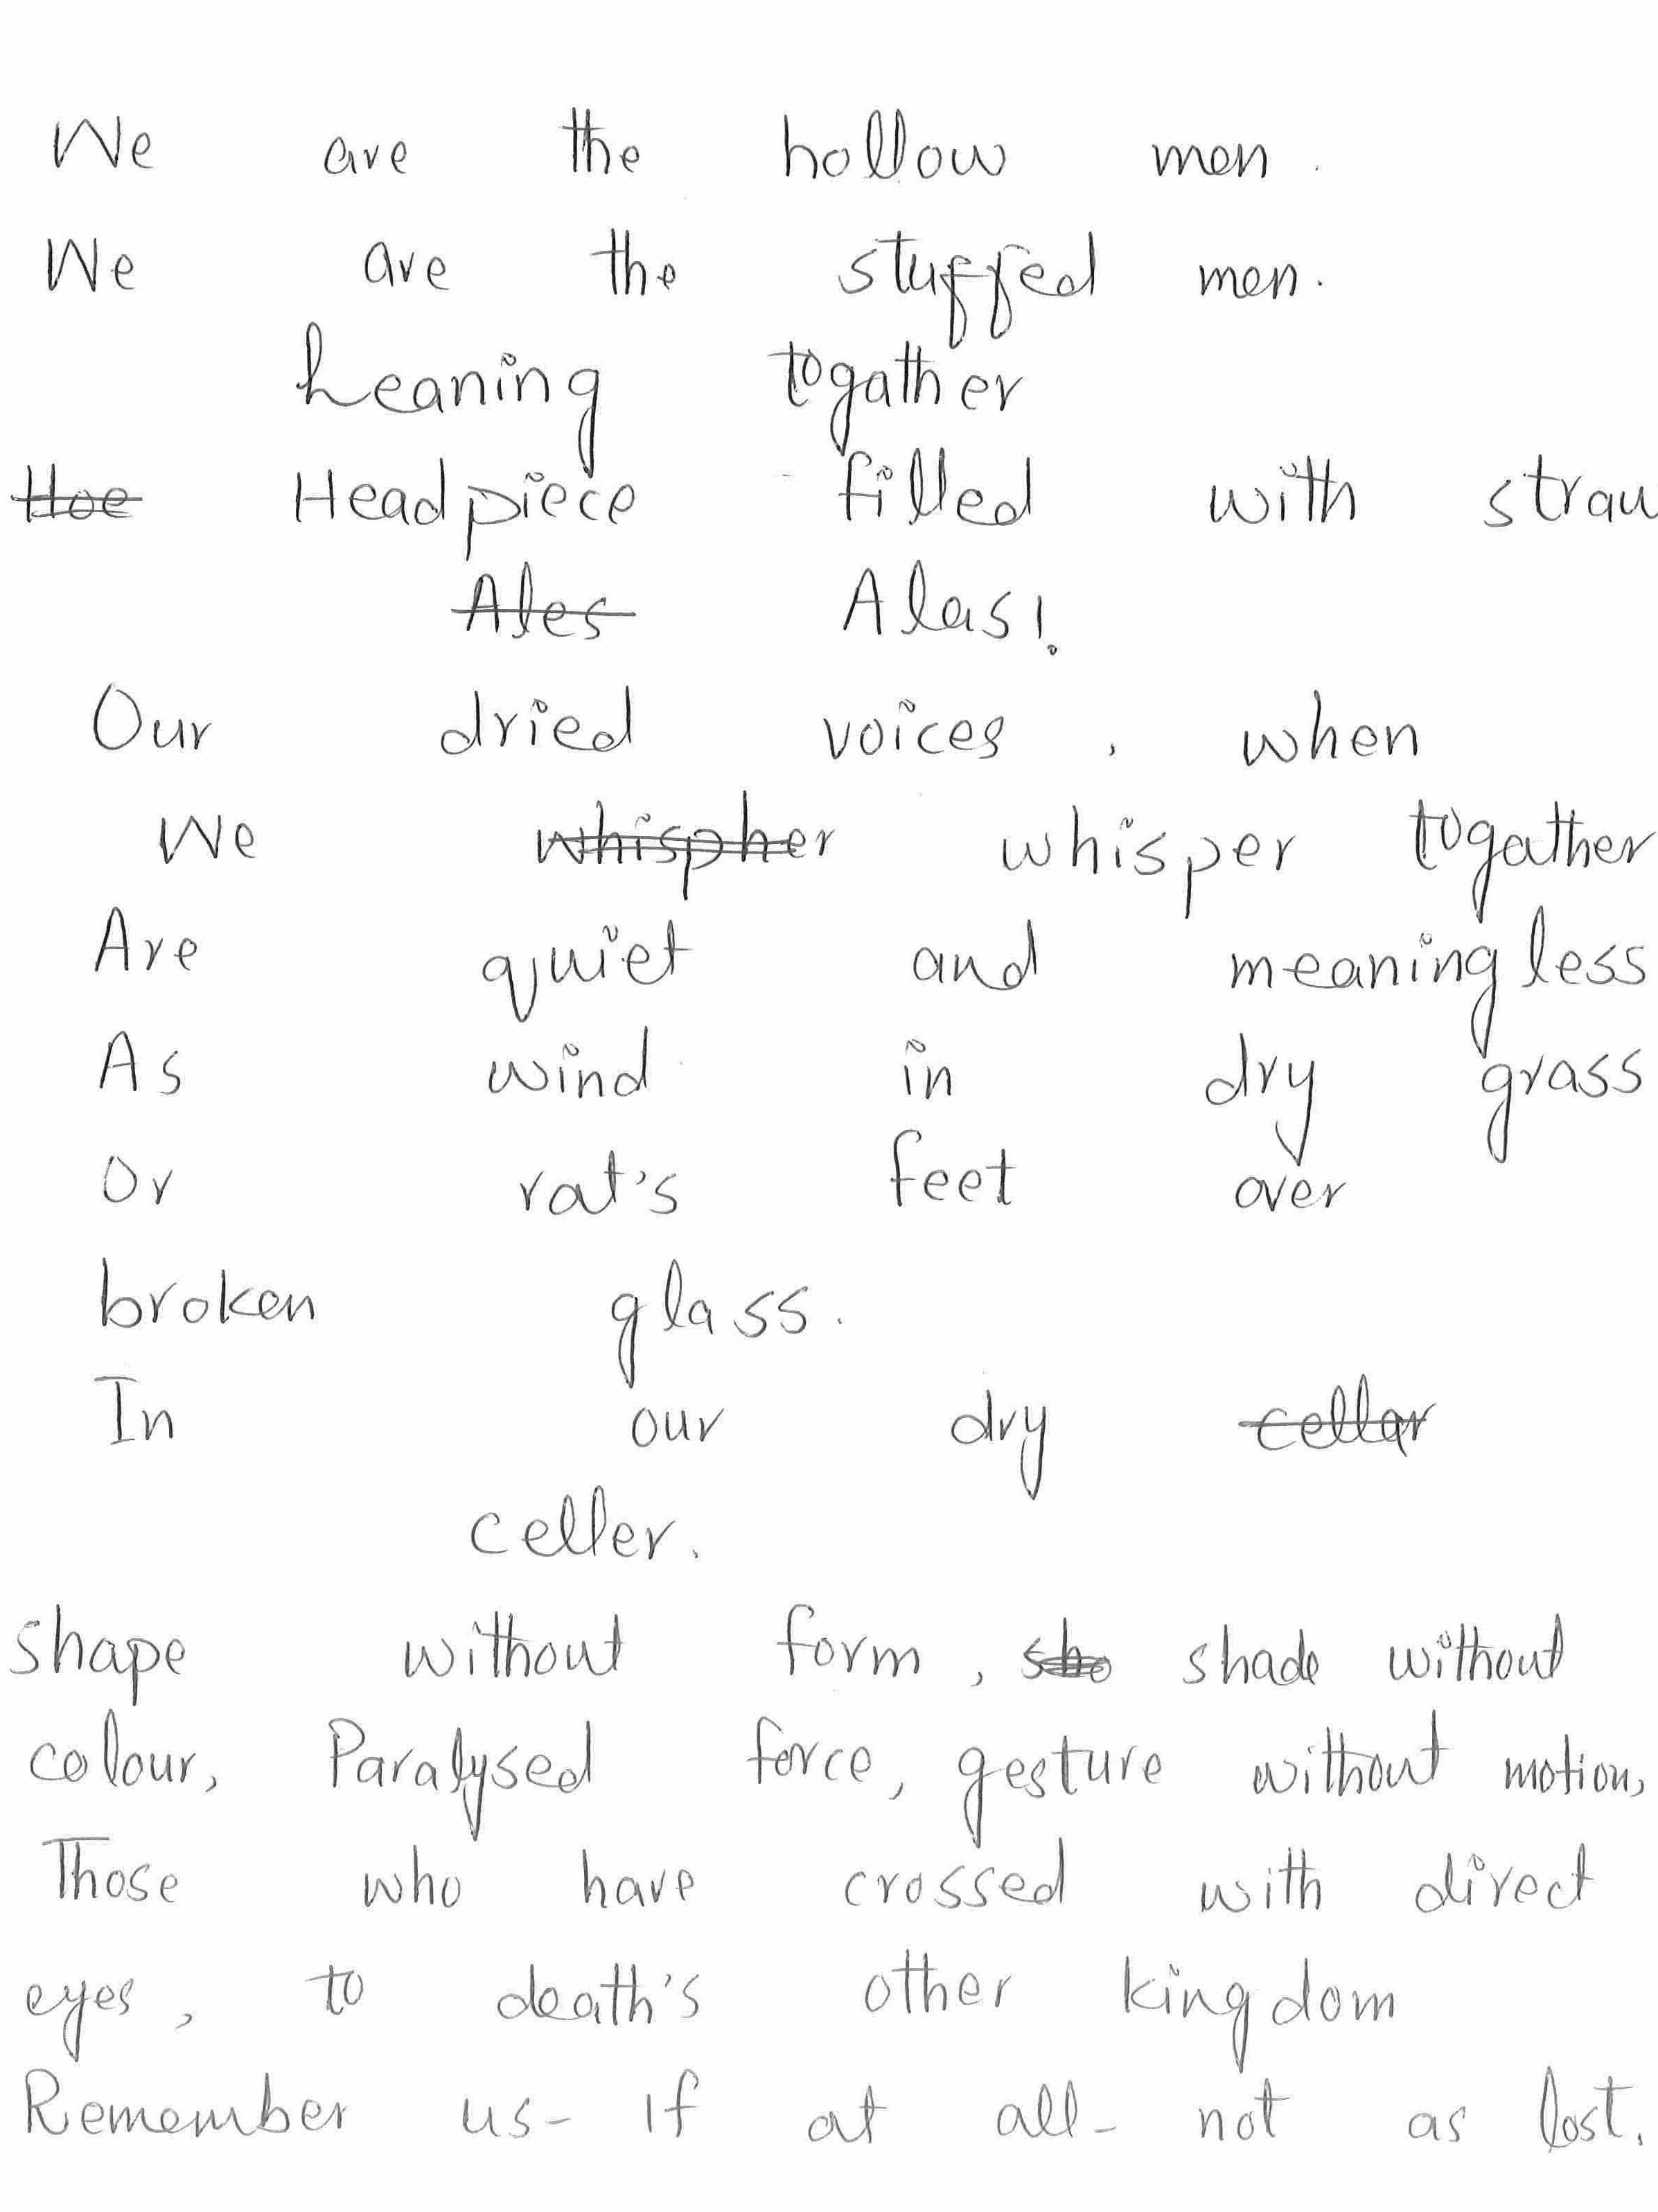 We are the hollow men.
We are the stuffed men.
Leaning togather
Hoe Headpiece filled with straw
Ales Alas!
Our dried voices, when
We whispher whisper togather
Are quiet and meaningless
As wind in dry grass
Or rat's feet over
broken glass.
In our dry cellar
celler.
shape without form, sho shade without
colour, Paralysed force, gesture without motion,
Those who have crossed with direct
eyes, to death's other kingdom
Remember us- If at all- not as lost.